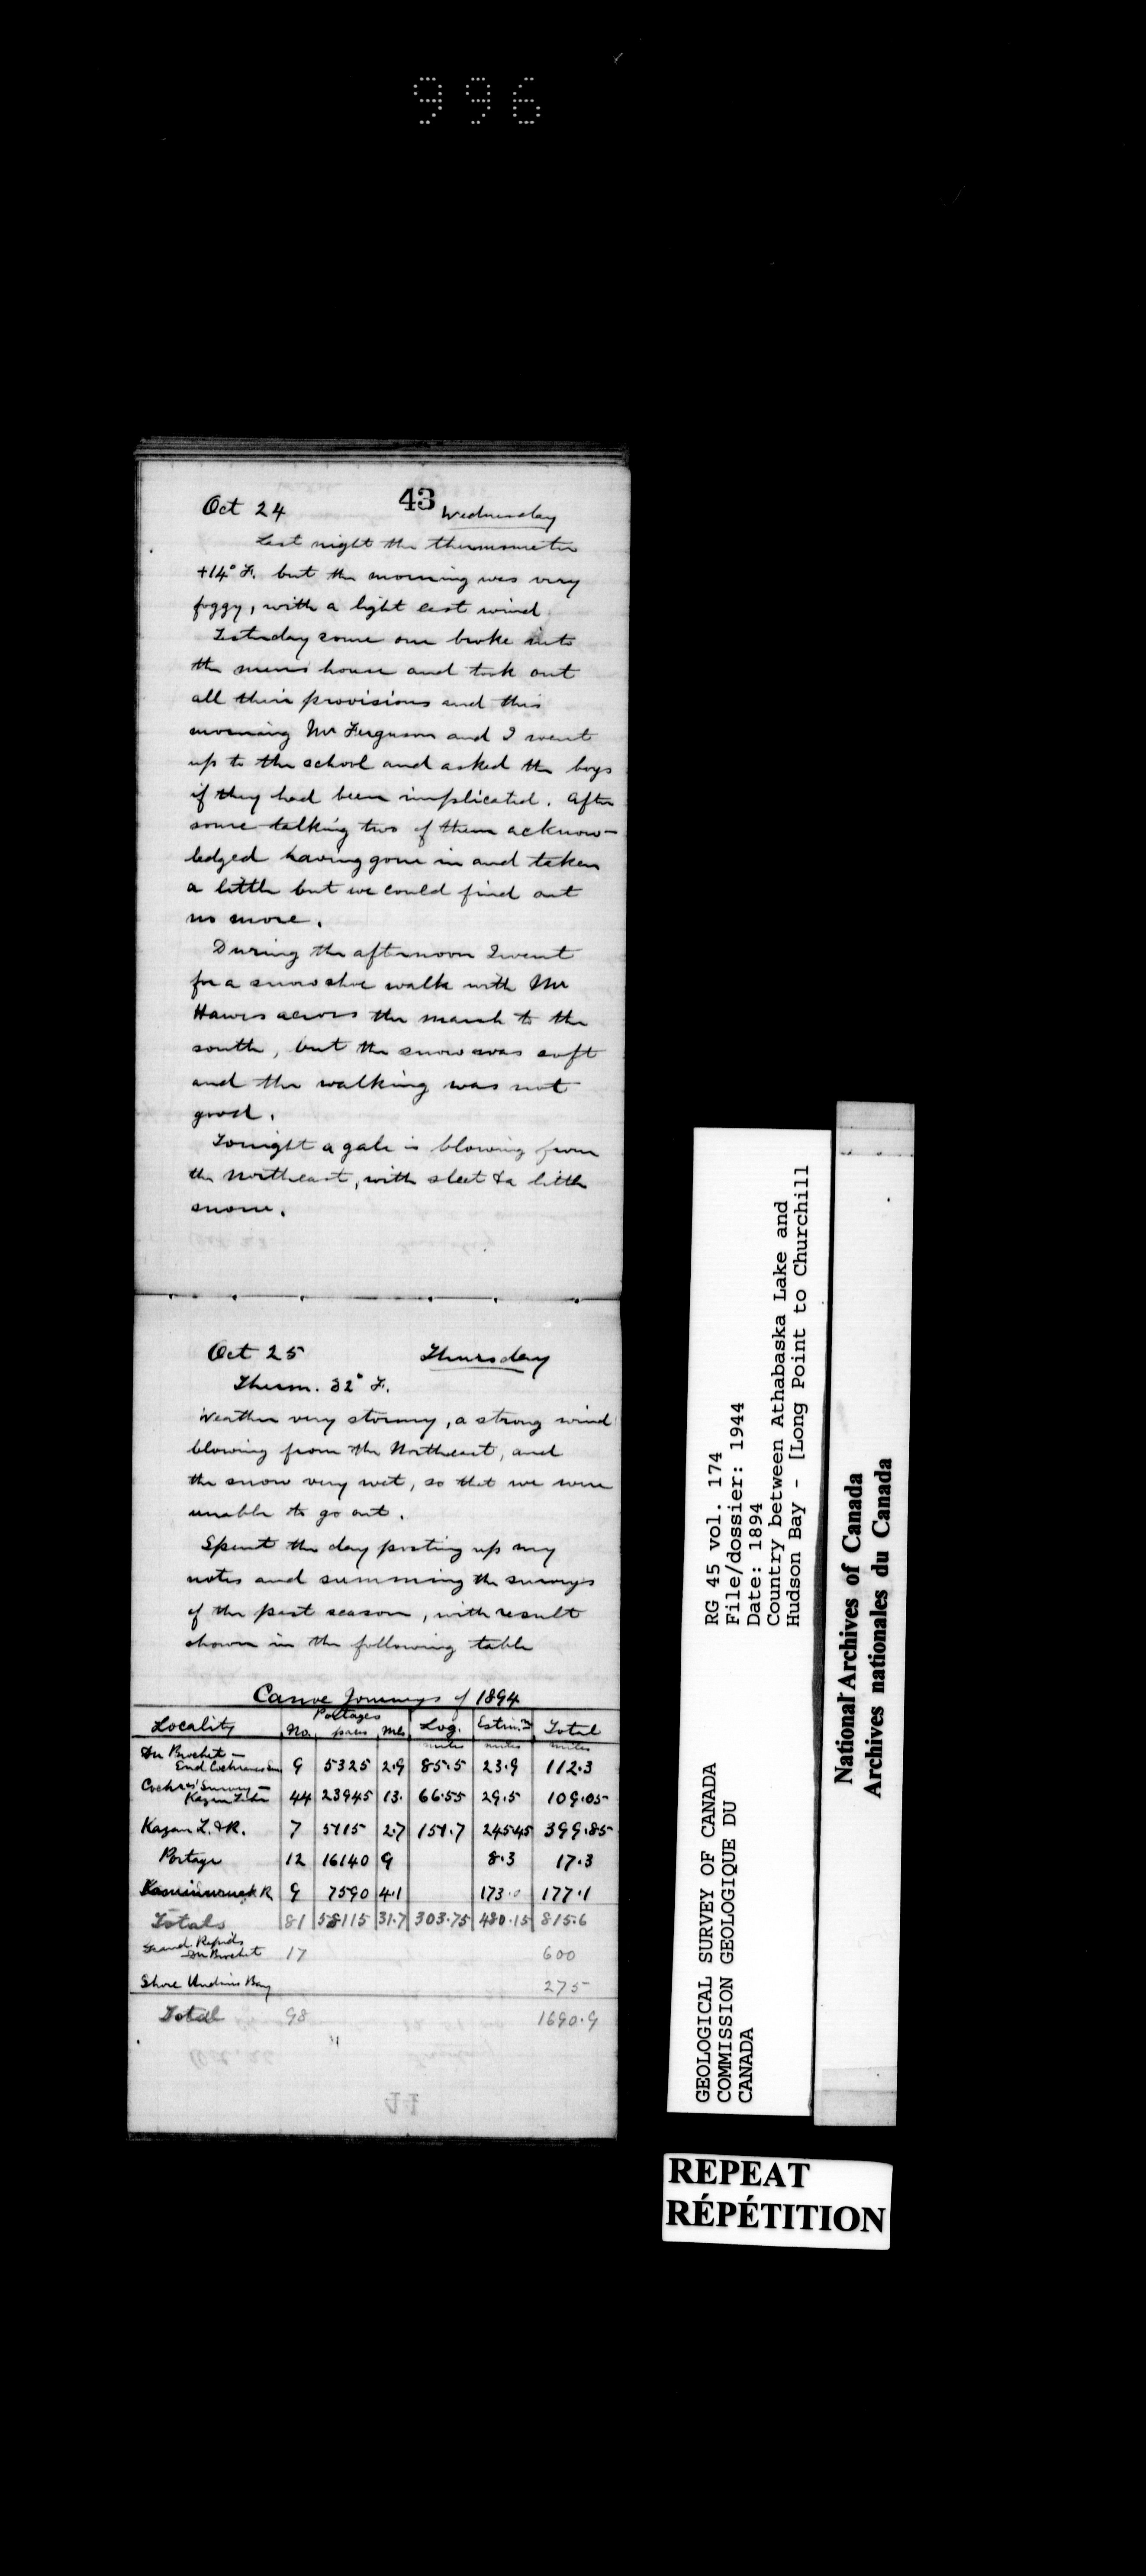 996
43
Oct 24 Wednesday
Last night the thermometer
+14° F. but the morning was very
foggy, with a light east wind
Yesterday some one broke into
the men's house and took out
all their provisions and this
morning Mr Ferguson and I went
up to the school and asked the boys
if they had been implicated. After
some talking two of them acknow-
ledged having gone in and taken
a little but we could find out
no more.
During the afternoon I went
for a snowshoe walk with Mr
Hawes across the marsh to the
south, but the snow was soft
and the walking was not
good.
Tonight a gale is blowing from
the Northeast, with sleet & a little
snow.
Oct 25 Thursday
Therm. 32° F.
Weather very stormy, a strong wind
blowing from the Northeast, and
the snow very wet, so that we were
unable to go out.
Spent the day posting up my
notes and summing the surveys
of the past season, with result
shown in the following table
Canoe Journeys of 1894
Locality No. Portages paces mls Log. miles Estim. miles Total miles
Du Brochet —
End Cochrane's Sur 9 5325 2.9 85.5 23.9 112.3
Cochres' Survey —
Kazan Lake 44 23945 13. 66.55 29.5 109.05
Kazan L. & R. 7 5115 2.7 151.7 245.45 399.85
Portage 12 16140 9 8.3 17.3
Kaminuriak R 9 7590 4.1 173.0 177.1
Totals 81 58115 31.7 303.75 480.15 815.6
Grand Rapids
Du Brochet 17 600
Shore Hudson's Bay 275
Total 98 1690.9
GEOLOGICAL SURVEY OF CANADA
COMMISSION GEOLOGIQUE DU
CANADA
RG 45 vol. 174
File/dossier: 1944
Date: 1894
Country between Athabaska Lake and
Hudson Bay - [Long Point to Churchill
National Archives of Canada
Archives nationales du Canada
REPEAT
RÉPÉTITION